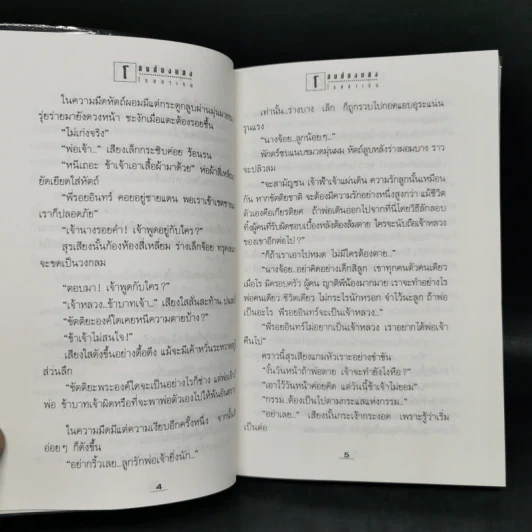 ในความมืดหัตถ์ผอมมีแต่กระดูกลูบผ่านมุ่นมวยผม
รุ่ยร่ายมายังดวงหน้า ชะงักเมื่อแตะต้องรอยชื้น
"ไม่เก่งจริง"
"พ่อเจ้า.." เสียงเล็กกระซิบค่อย ร้อนรน
"หนีเถอะ ข้าเจ้าเอาเสื้อผ้ามาด้วย" ห่อผ้าสี่เหลี่ยม
ยัดเยียดใส่หัตถ์
"พี่รอยอินทร์ คอยอยู่ชายแดน พอเราเข้าเขต
เราก็ปลอดภัย"
"เจ้านางรอยคำ! เจ้าพูดอยู่กับใคร?"
สุรเสียงนั้นก้องห้องสี่เหลี่ยม ร่างเล็กจ้อย
จะขดเป็นวงกลม
"ตอบมา! เจ้าพูดกับใคร?"
"เจ้าหลวง..ข้าบาทเจ้า.." เสียงใสสั่นสะท้าน
"ขัตติยะองค์ใดเคยหนีความตายบ้าง?"
"ข้าเจ้าไม่สนใจ!"
เสียงใสดังขึ้นอย่างดื้อดึง แม้จะมีเค้าหวั่น
ส่วนลึก
"ขัตติยะพระองค์ใดจะเป็นอย่างไรก็ช่าง แต่พ่อเจ้า
พ่อ ข้าบาทเจ้าผิดหรือที่จะพาพ่อตัวเองไปให้พ้น
ในความมืดมีแต่ความเงียบอีกครั้งหนึ่ง จากนั้น
อ่อยๆ ก็ดังขึ้น
"อย่ากริ้วเลย..ลูกรักพ่อเจ้ายิ่งนัก.."
4
เท่านั้น..ร่างบาง เล็ก ก็ถูกรวบไปกอดแอบอุระแน่น
รุนแรง
"นางจ้อย..ลูกน้อยๆ.."
พักตร์ซบแนบขมวดมุ่นผม หัตถ์ลูบหลังร่างผอมบาง ราว
จะปลิวลม
"จะสามัญชน เจ้าฟ้าเจ้าแผ่นดิน ความรักลูกนั้นเหมือน
กัน หากขัตติยชาติ จะต้องมีความรักอย่างหนึ่งสูงกว่า แม้ชีวิต
ตัวเองคือเกียรติยศ ถ้าพ่อเดินออกไปจากที่นี่โดยวิธีลักลอบ
ทั้งผู้คนที่รับผิดชอบเบื้องหลังต้องล้มตาย ใครจะนับถือเจ้าหลวง
ของเขาอีกต่อไป?"
"ก็ถ้าเราเอาไปหมด ไม่มีใครต้องตาย.."
"นางจ้อย..อย่าคิดอย่างเด็กสิลูก เขาทุกคนตัวคนเดียว
เมื่อไร มีครอบครัว ผู้คน ญาติพี่น้องมากมาย เราจะทำอย่างไร
พ่อคนเดียว ชีวิตเดียว ไม่กระไรนักหรอก จำไว้นะลูก ถ้าพ่อ
เป็นอะไร พี่รอยอินทร์จะเป็นเจ้าหลวง.."
"พี่รอยอินทร์ไม่อยากเป็นเจ้าหลวง เราอยากได้พ่อเจ้า
คืนไป"
คราวนี้สุรเสียงแกมหัวเราะอย่างขำขัน
"งั้นวันหน้าถ้าพ่อตาย เจ้าจะทำยังไงหือ?"
"เอาไว้วันหน้าค่อยคิด แต่วันนี้ข้าเจ้าไม่ยอม"
"กรรม..ต้องเป็นไปตามกระแสแห่งกรรม.."
"อย่าเลย.." เสียงนั้นกระเง้ากระงอด เพราะรู้ว่าเริ่ม
เป็นต่อ
5